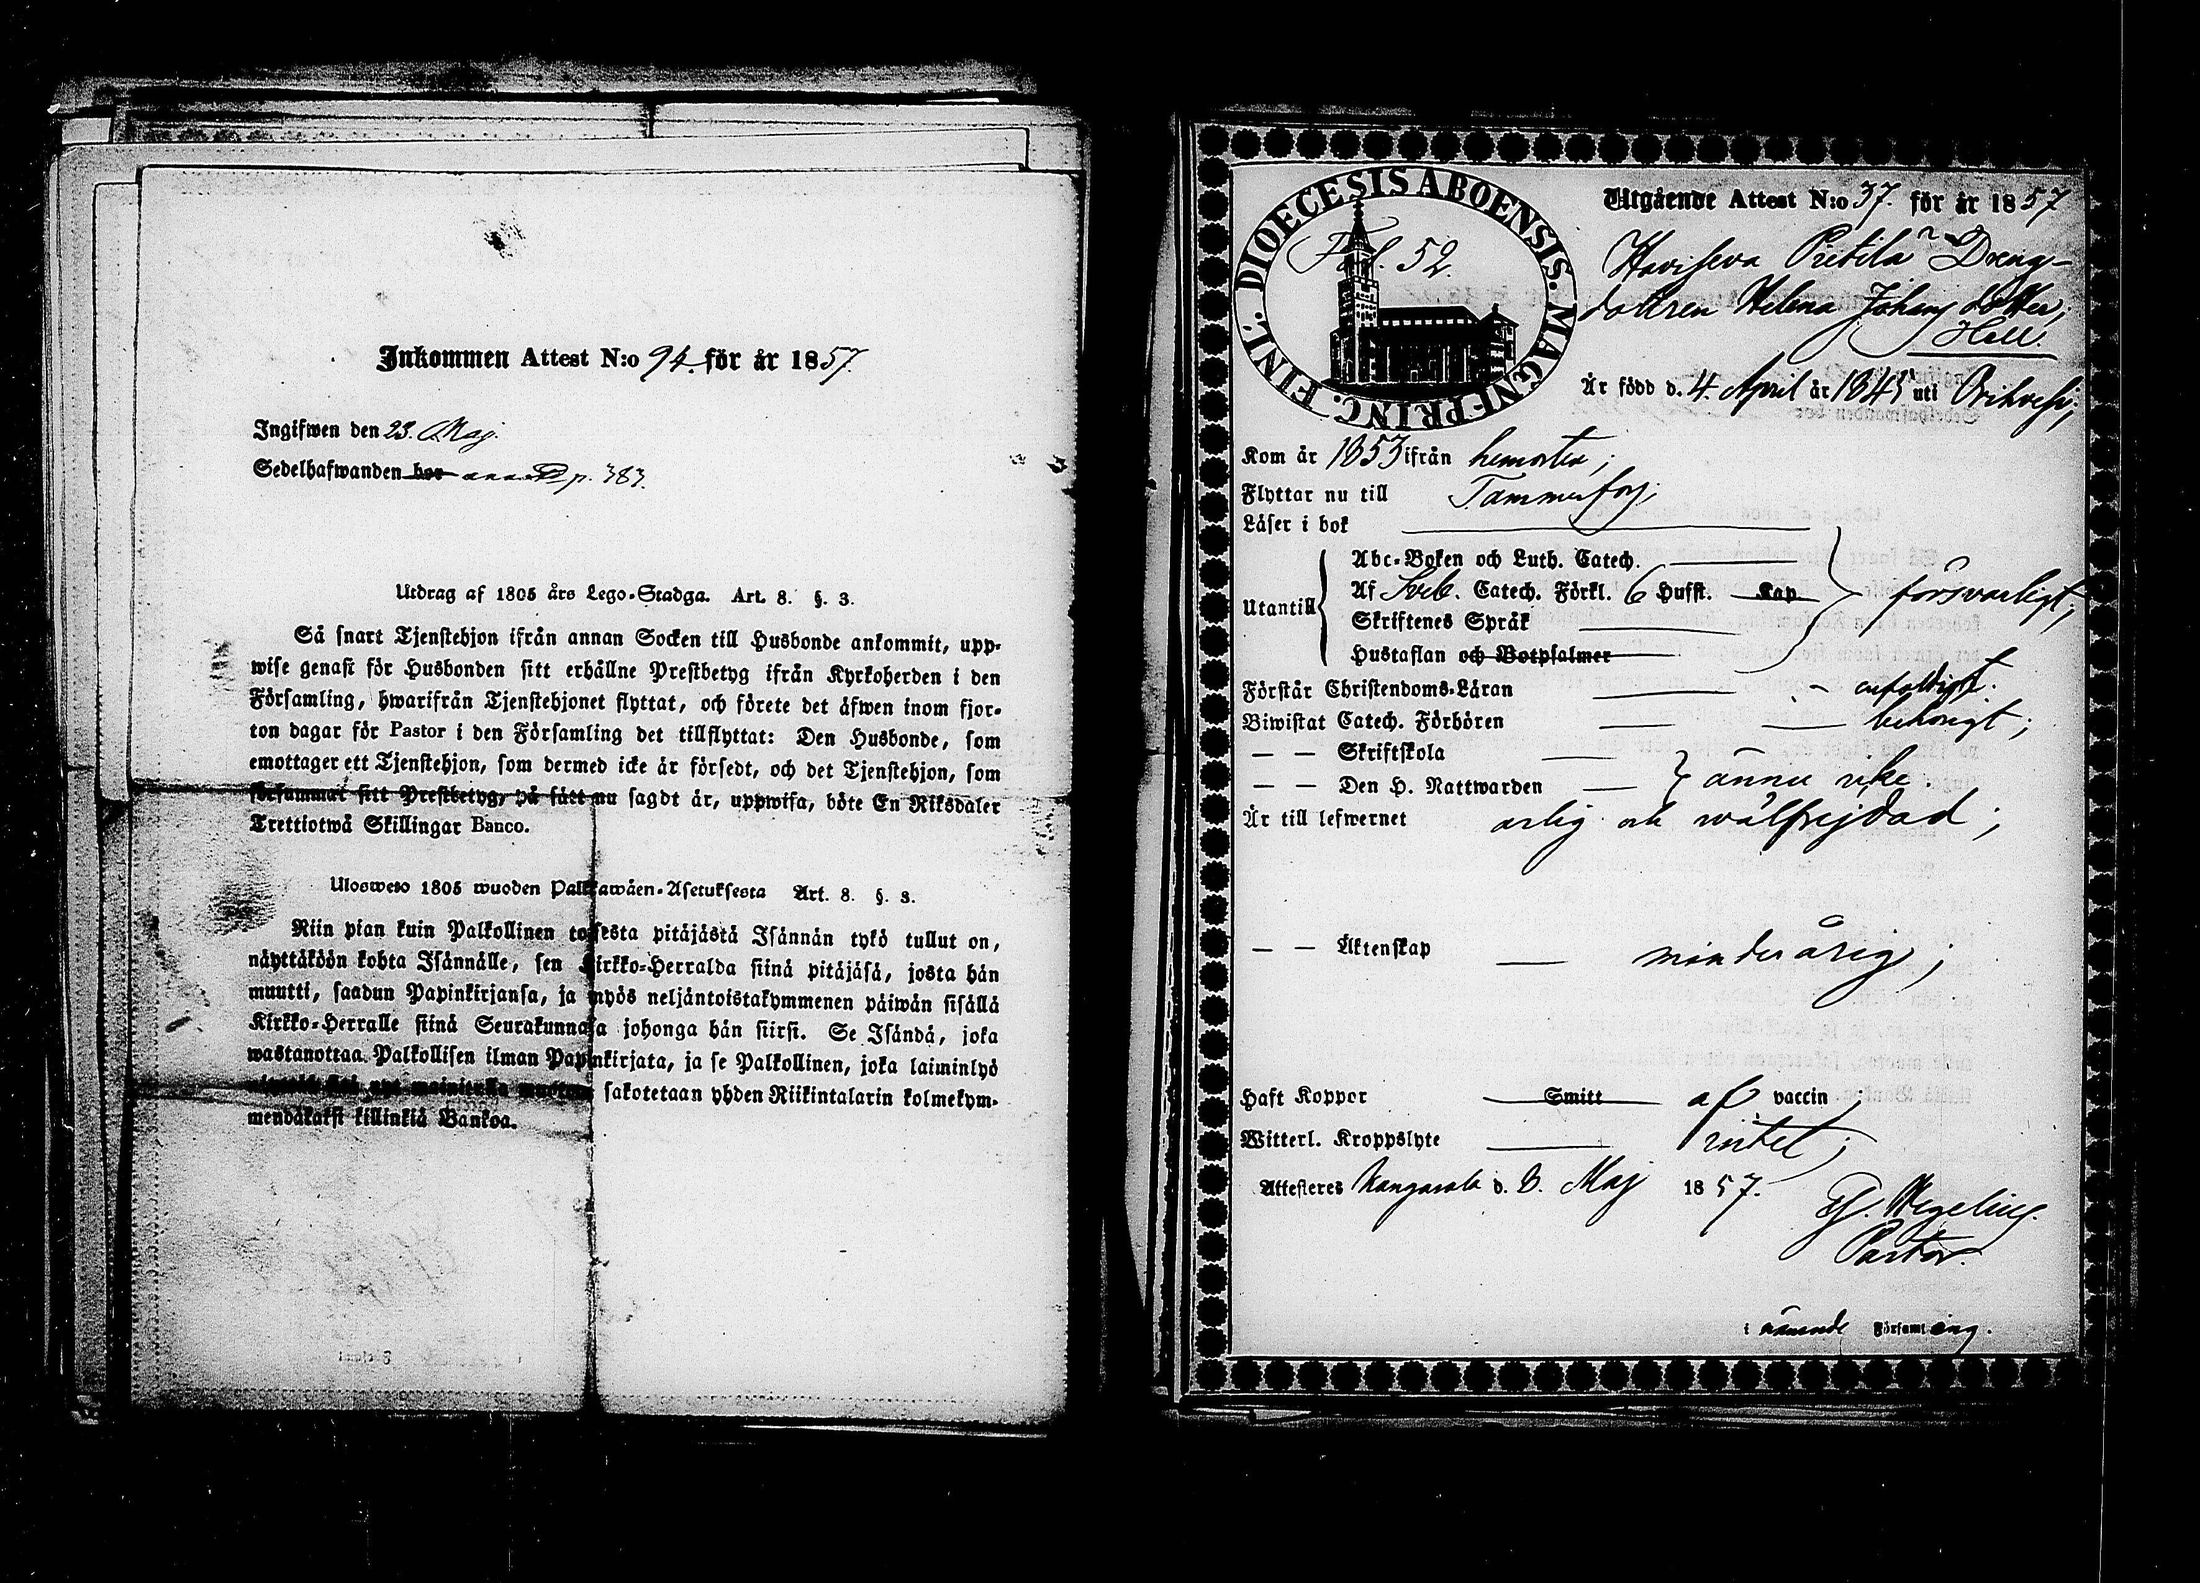 Inkommen Attest N:o 94. för år 1857.
Ingifwen den 23. Maj.
Sedelhafwanden bor p. 383.
Utdrag af 1805 års Lego-Stadga. Art. 8. §. 3.
Så snart Tjenstehjon ifrån annan Socken till Husbonde ankommit, upp-
wise genast för Husbonden sitt erhållne Prestbetyg ifrån Kyrkoherden i den
Församling, hwarifrån Tjenstehjonet flyttat, och förete det äfwen inom fjor-
ton dagar för Pastor i den Församling det tillflyttat: Den Husbonde, som
emottager ett Tjenstehjon, som dermed icke är försedt, och det Tjenstehjon, som
försummar sitt Prestbetyg, på sätt nu sagdt är, uppwisa, böte En Riksdaler
Trettiotwå Skillingar Banco.
Ulosweto 1805 wuoden Palkkawäen-Asetuksesta Art. 8. §. 3.
Niin pian kuin Palkollinen toisesta pitäjästä Isännän tykö tullut on,
näyttäköön kohta Isännälle, sen Kirkko-Herralda siinä pitäjäsä, josta hän
muutti, saadun Papinkirjansa, ja myös neljäntoistakymmenen päiwän sisällä
Kirkko-Herralle siinä Seurakunnasa johonga hän siirsi. Se Isändä, joka
wastanottaa Palkollisen ilman Papinkirjata, ja se Palkollinen, joka laiminlyö
nyt mainitulla muotoa sakotetaan yhden Riikintalarin kolmekym-
mendäkaksi killinkiä Bankoa.
DIOECESIS ABOENSIS. MAGNI PRINC. FINL.
Fol. 52.
Utgående Attest N:o 37. för år 1857
Haviseva Pietilä Dreng-
dottren Helena Johans dotter,
Hall.
Är född d. 4. April år 1845 uti Orihvesi;
Kom år 1853 ifrån hemorten;
Flyttar nu till Tammerfors;
Läser i bok
Abc-Boken och Luth. Catech.
Utantill Af Sveb. Catech. Förkl. 6 Hufst. Kap försvarligt;
Skriftenes Språk
Hustaflan och Botpsalmer
Förstår Christendoms-Läran enfaldigt.
Biwistat Catech. Förhören behörigt;
— — Skriftskola
— — Den H. Nattwarden ännu icke.
Är till lefwernet ärlig och wälfrejdad;
— — Äktenskap minderårig;
Haft Koppor Smitt af vaccin;
Witterl. Kroppslyte intet;
Attesteres Kangasala d. 8. Maj 1857.
Wegelius.
Pastor.
i nämnde Församling.